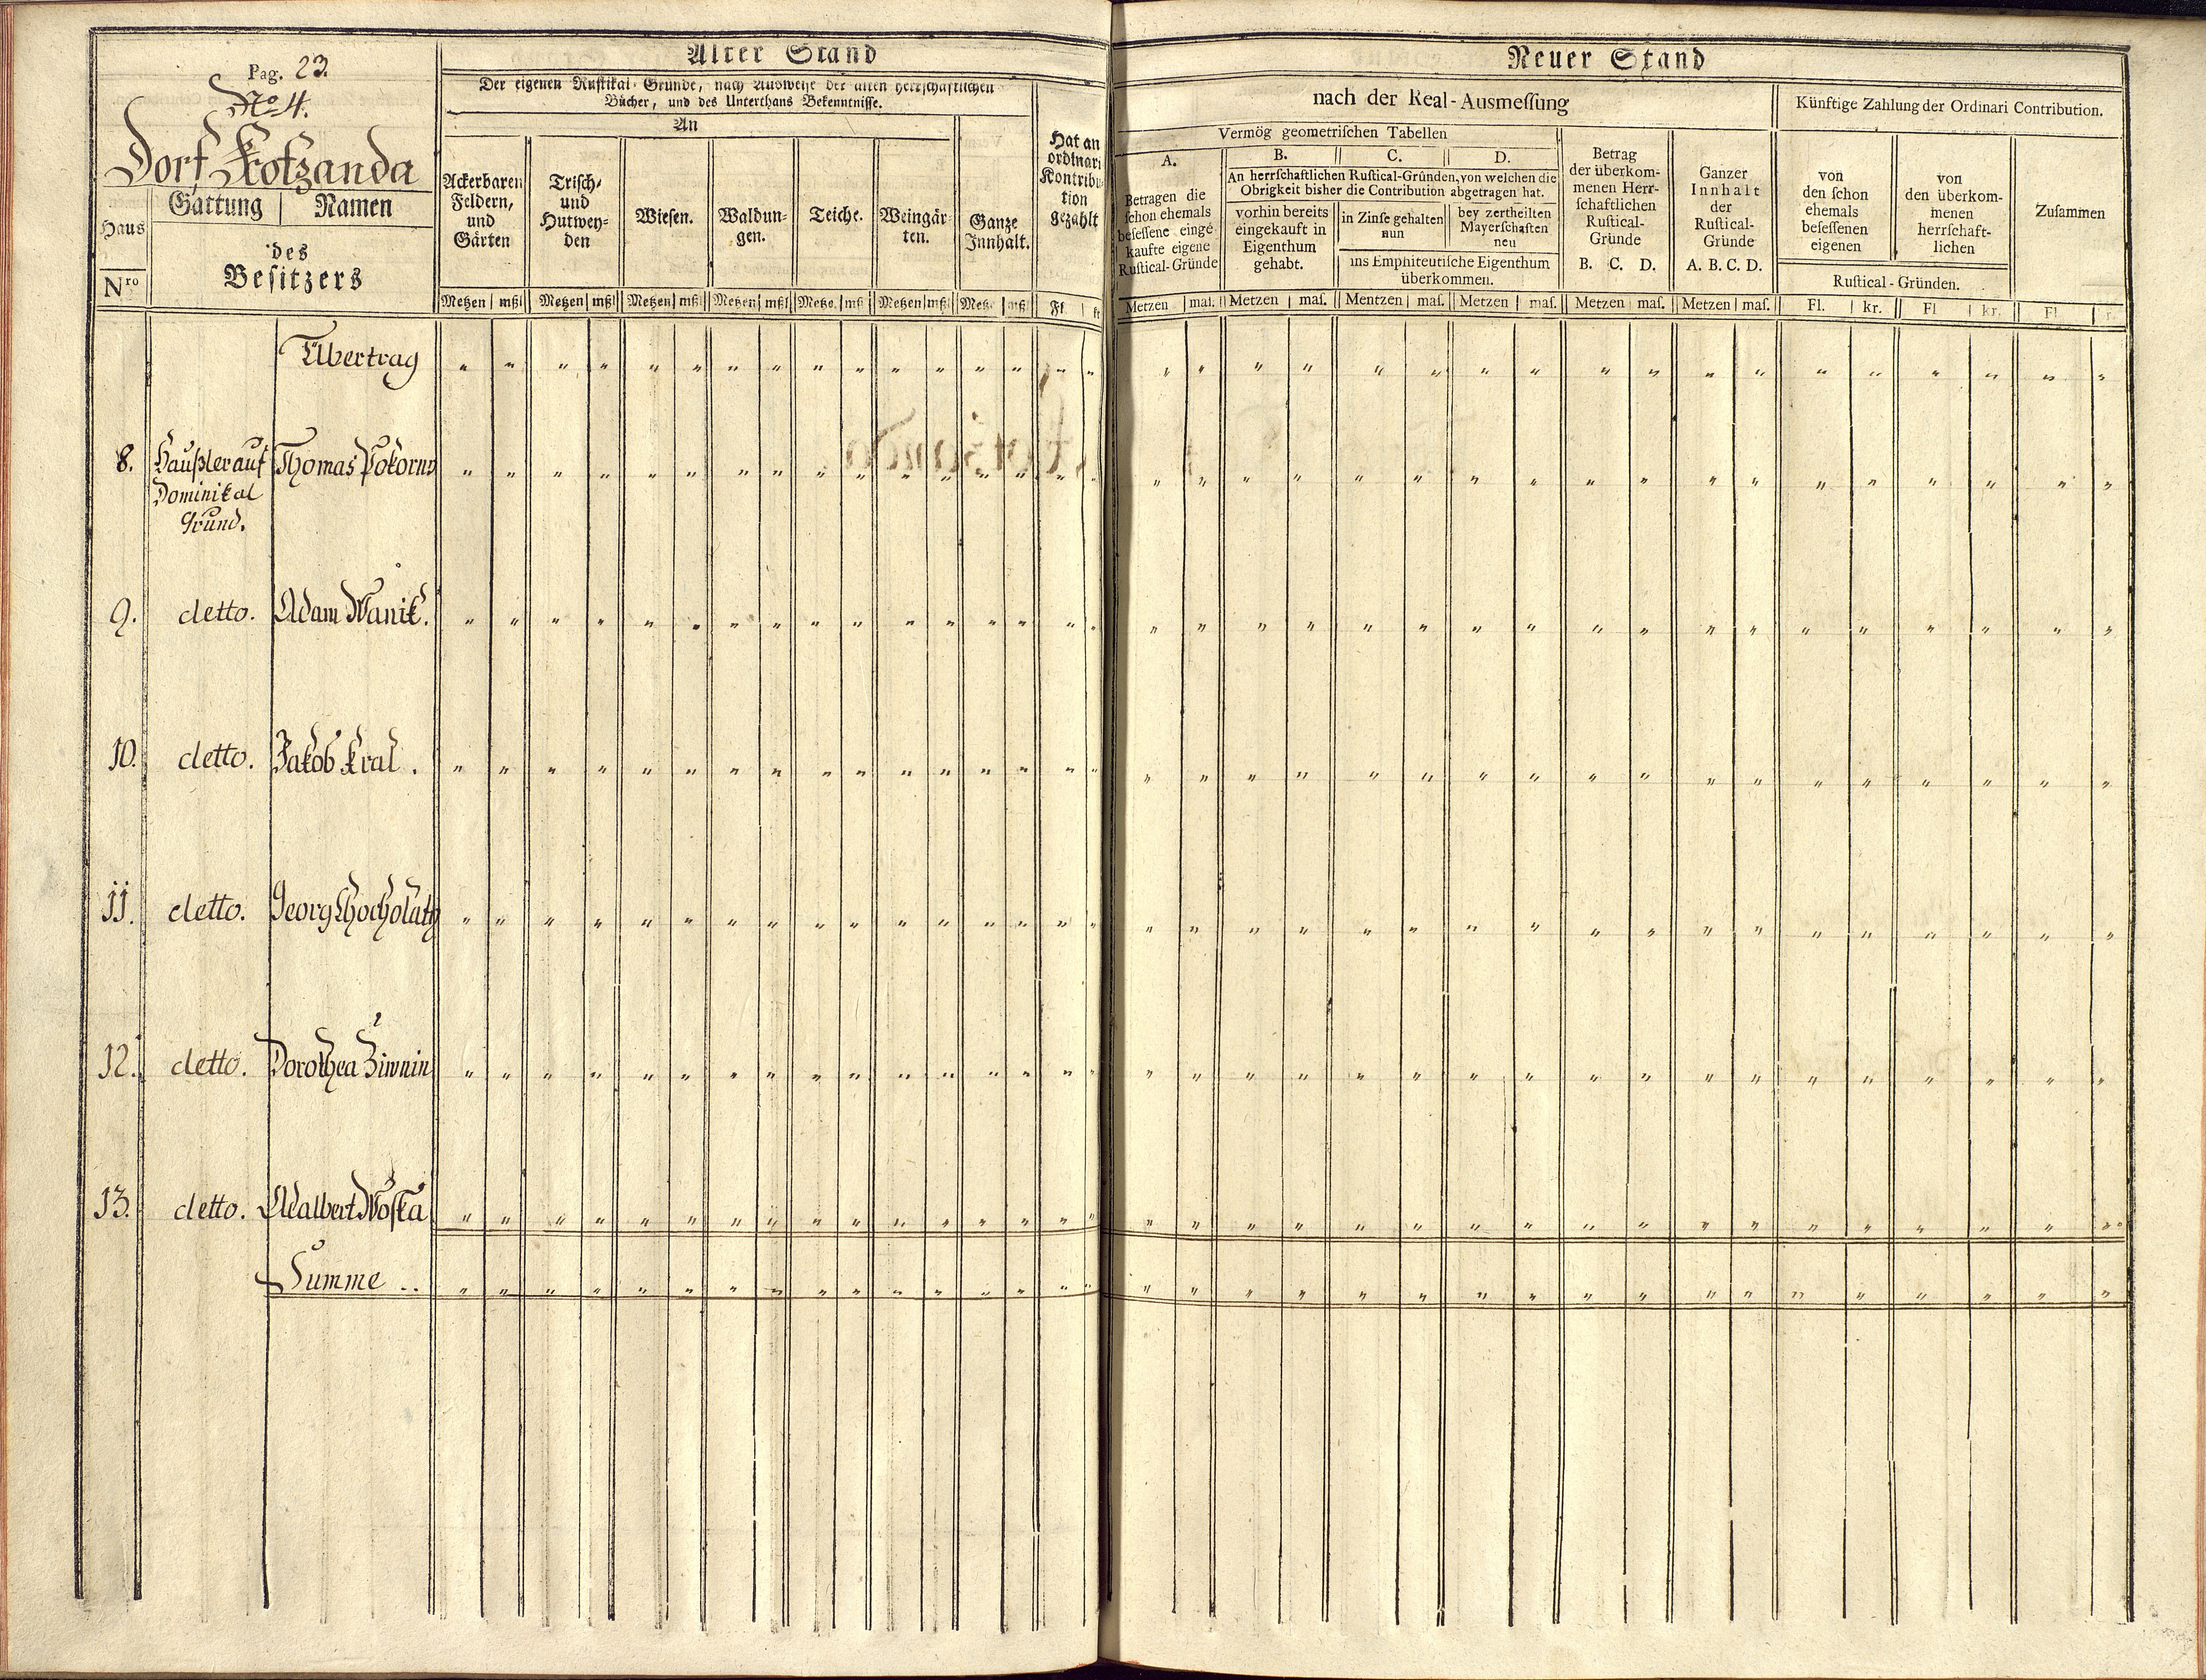 Pag. 23.
No 4.
Dorf Kotzanda
Haus
Nro
Gattung | Namen
des
Besitzers
Alter Stand
Der eigenen Rustikal-Gründe, nach Ausweise der alten herrschaftlichen
Bücher, und des Unterthans Bekenntnisse.
An
Ackerbaren
Feldern,
und
Gärten
Trisch-
und
Hutwey-
den
Wiesen.
Waldun-
gen.
Teiche.
Weingär-
ten.
Ganze
Innhalt.
Hat an
ordinari
Kontribu-
tion
gezahlt
Metzen | mßl | Metzen | mßl | Metzen | mßl | Metzen | mßl | Metze. | mß | Metzen | mßl | Metz. | mß | Fl | kr
Neuer Stand
nach der Real-Ausmeſſung
Vermög geometriſchen Tabellen
A.
Betragen die
ſchon ehemals
beſeſſene einge
kaufte eigene
Ruſtical-Gründe
B. C. D.
An herrſchaftlichen Ruſtical-Gründen, von welchen die
Obrigkeit bisher die Contribution abgetragen hat.
vorhin bereits
eingekauft in
Eigenthum
gehabt.
in Zinſe gehalten
nun
bey zertheilten
Mayerſchaften
neu
ins Emphiteutiſche Eigenthum
überkommen.
Betrag
der überkom-
menen Herr-
ſchaftlichen
Ruſtical-
Gründe
B. C. D.
Ganzer
Innhalt
der
Ruſtical-
Gründe
A. B. C. D.
Künftige Zahlung der Ordinari Contribution.
von
den ſchon
ehemals
beſeſſenen
eigenen
von
den überkom-
menen
herrſchaft-
lichen
Ruſtical-Gründen.
Zuſammen
Metzen | maſ. | Metzen | maſ. | Mentzen | maſ. | Metzen | maſ. | Metzen | maſ. | Metzen | maſ. | Fl. | kr. | Fl | kr. | Fl | r.
Übertrag
8. Haußler auf Thomas Pokorny
Dominikal
Grund.
9. detto. Adam Wanik.
10. detto. Jakob Kral.
11. detto. Georg Chocholaty
12. detto. Dorothea Ziwnin
13. detto. Adalbert Woska
Summe ..